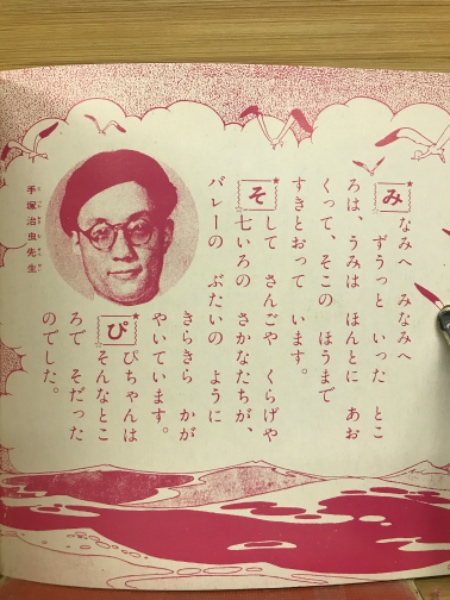 みなみへ　みなみへ
ずうっと　いった　とこ
ろは、うみは　ほんとに　あお
くって、そこの　ほうまで
すきとおって　います。
そして　さんごや　くらげや
七いろの　さかなたちが、
バレーの　ぶたいの　ように
きらきら　かが
やいています。
ぴぴちゃんは
そんなとこ
ろで　そだった
のでした。
手塚治虫先生